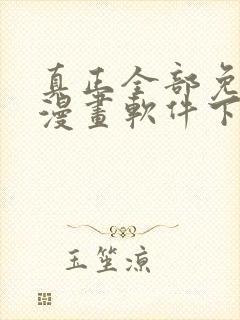 真正全部免
漫畫軟件下
玉笙凉